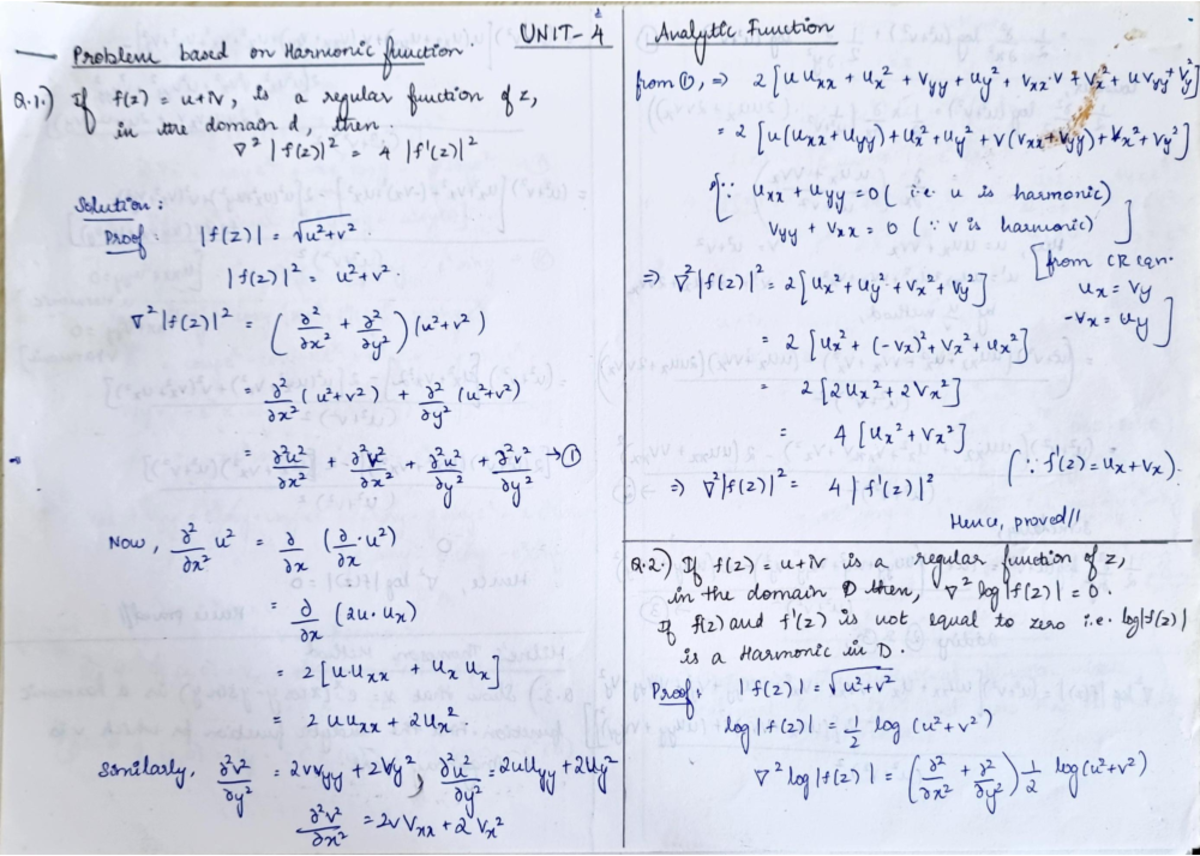 UNIT-4
Problem based on Harmonic function.
Q.1.) If f(z) = u+iv, is a regular function of z,
in the domain d, then.
∇² |f(z)|² = 4 |f'(z)|²
Solution:
Proof: |f(z)| = √u²+v².
|f(z)|² = u²+v².
∇²|f(z)|² = (∂²/∂x² + ∂²/∂y²) (u²+v²)
= ∂²/∂x² (u²+v²) + ∂²/∂y² (u²+v²)
= ∂²u²/∂x² + ∂²v²/∂x² + ∂²u²/∂y² + ∂²v²/∂y² → ①
Now, ∂²/∂x² u² = ∂/∂x (∂/∂x · u²)
= ∂/∂x (2u · ux)
= 2 [u·uxx + ux ux]
= 2 uuxx + 2ux².
Similarly, ∂²v²/∂y² = 2vvyy + 2vy², ∂²u²/∂y² = 2uuyy + 2uy²
∂²v²/∂x² = 2v vxx + 2 vx²
Analytic Function
from ①, ⇒ 2 [u uxx + ux² + vyy + uy² + vxx·v + vx² + u vyy + vy²]
= 2 [u(uxx + uyy) + ux² + uy² + v(vxx + vyy) + vx² + vy²]
[∵ uxx + uyy = 0 (i.e. u is harmonic)
vyy + vxx = 0 (∵ v is harmonic)]
⇒ ∇²|f(z)|² = 2[ux² + uy² + vx² + vy²]
[from CR eqn.
ux = vy
-vx = uy]
= 2 [ux² + (-vx)² + vx² + ux²]
= 2 [2ux² + 2vx²]
= 4 [ux² + vx²]
⇒ ∇²|f(z)|² = 4|f'(z)|² (∵ f'(z) = ux + vx).
Hence, proved//
Q.2.) If f(z) = u+iv is a regular function of z,
in the domain D then, ∇² log |f(z)| = 0.
If f(z) and f'(z) is not equal to zero i.e. log|f(z)|
is a Harmonic in D.
Proof: |f(z)| = √u²+v²
log |f(z)| = 1/2 log (u²+v²)
∇² log |f(z)| = (∂²/∂x² + ∂²/∂y²) 1/2 log(u²+v²)